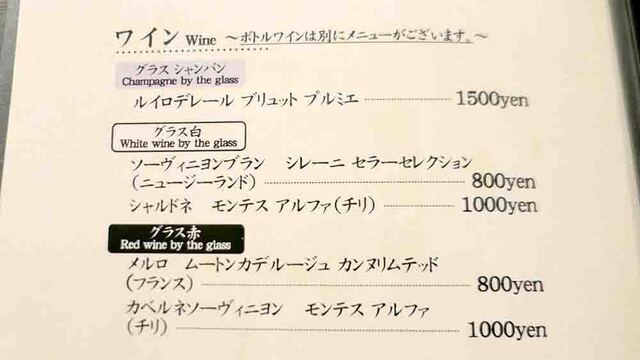 ワイン Wine ~ボトルワインは別にメニューがございます。~
グラス シャンパン
Champagne by the glass
ルイロデレール ブリュット プルミエ 1500yen
グラス白
White wine by the glass
ソーヴィニヨンブラン シレーニ セラーセレクション
(ニュージーランド) 800yen
シャルドネ モンテス アルファ(チリ) 1000yen
グラス赤
Red wine by the glass
メルロ ムートンカデルージュ カンヌリムテッド
(フランス) 800yen
カベルネソーヴィニヨン モンテス アルファ
(チリ) 1000yen